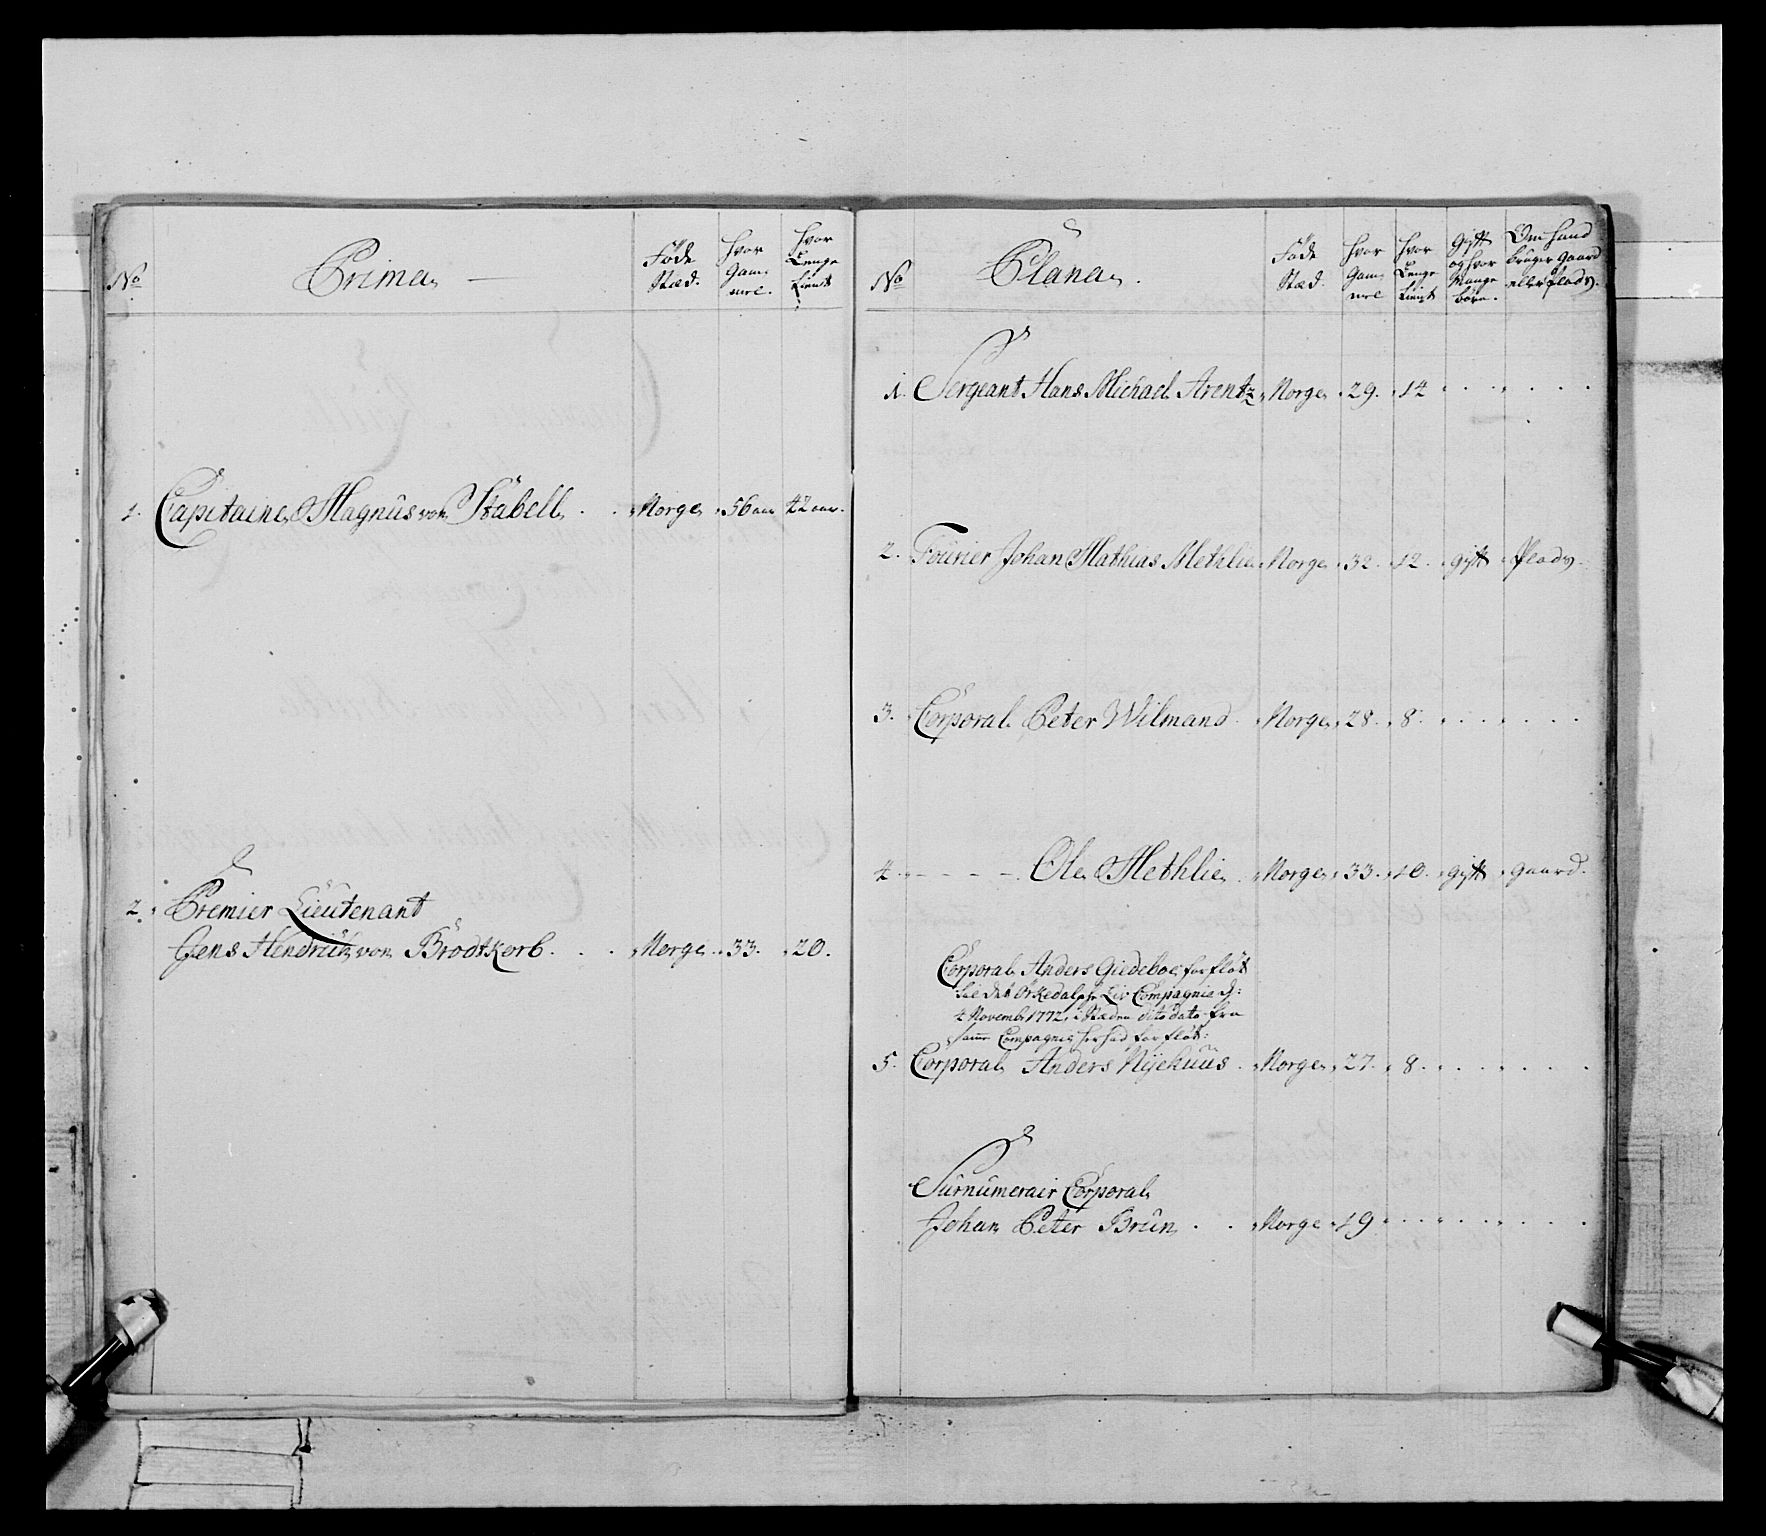 No Prima Føde Stæd. hvor Gam- mel. hvor Lenge tient
1. Capitaine Magnus von Stabell . . Norge 56 aar 42 aar.
2. Premier Lieutenant
Jens Hendrich von Brodtkorb . . . Norge 33. 20.
No Plana. Føde Stæd. hvor Gam- mel hvor Lenge tient gift og hvor Mange børn. Om hand bruger gaard eller plads.
1. Sergeant Hans Michael Arentz Norge 29. 14
2. Fourier Johan Mathias Methlie Norge 32. 12. gift plads.
3. Corporal Peter Wilmand. Norge 28. 8.
4. - - - - Ole Methlie Norge 33. 10. gift gaard.
Corporal Anders Giedeboe forfløt
til det Orkedalske Liv Compagnie d:
4 Novembr 1772, i Stæden dito dato fra
samme Compagnie herhid forfløt:
5. Corporal Anders Nyehuus . Norge 27. 8.
Surnumerair Corporal
Johan Peter Brun . . Norge 19